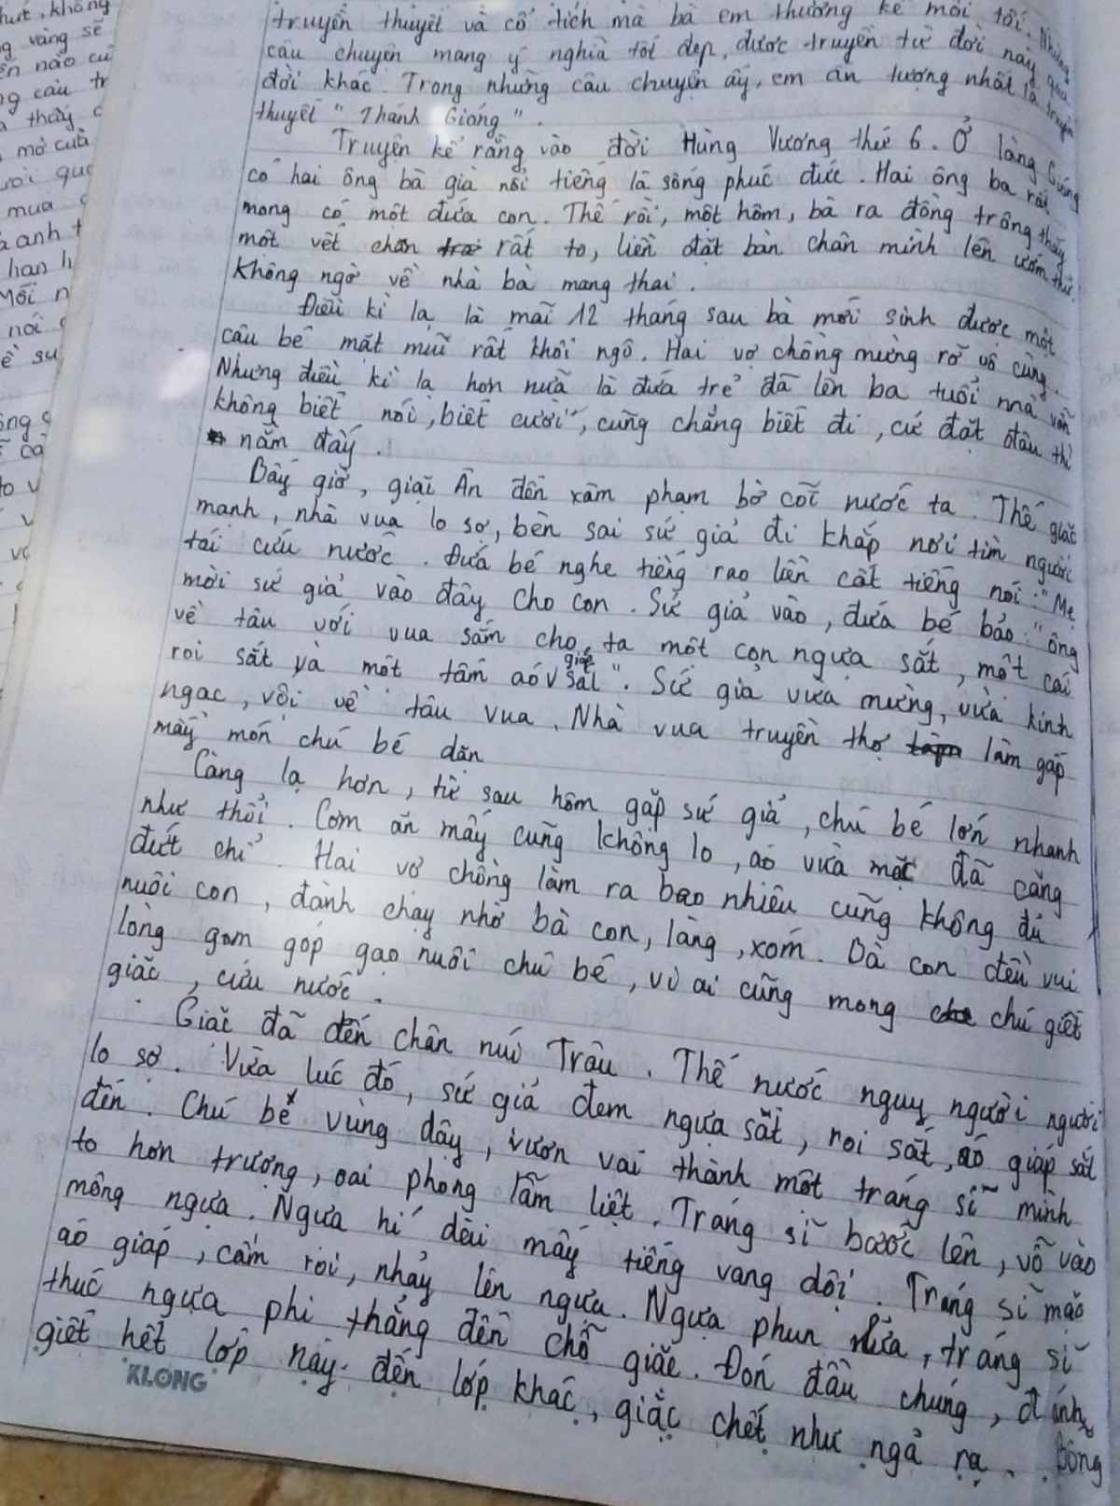 truyền thuyết và cổ tích mà bà em thường kể mỗi tối. Những
câu chuyện mang ý nghĩa tốt đẹp, được truyền từ đời này qua
đời khác. Trong những câu chuyện ấy, em ấn tượng nhất là truyền
thuyết "Thánh Gióng".
Truyện kể rằng vào đời Hùng Vương thứ 6. Ở làng Gióng
có hai ông bà già nổi tiếng là sống phúc đức. Hai ông bà rất
mong có một đứa con. Thế rồi, một hôm, bà ra đồng trông thấy
một vết chân rất to, liền đặt bàn chân mình lên ướm thử.
Không ngờ về nhà bà mang thai.
Điều kì lạ là mãi 12 tháng sau bà mới sinh được một
cậu bé mặt mũi rất khôi ngô. Hai vợ chồng mừng rỡ vô cùng.
Nhưng điều kì lạ hơn nữa là đứa trẻ đã lên ba tuổi mà vẫn
không biết nói, biết cười, cũng chẳng biết đi, cứ đặt đâu thì
nằm đấy.
Bấy giờ, giặc Ân đến xâm phạm bờ cõi nước ta. Thế giặc
mạnh, nhà vua lo sợ, bèn sai sứ giả đi khắp nơi tìm người
tài cứu nước. Đứa bé nghe tiếng rao liền cất tiếng nói: "Mẹ
mời sứ giả vào đây cho con. Sứ giả vào, đứa bé bảo: "ông
về tâu với vua sắm cho ta một con ngựa sắt, một cái
roi sắt và một tấm áo giáp sắt". Sứ giả vừa mừng, vừa kinh
ngạc, vội về tâu vua. Nhà vua truyền thợ làm gấp
mấy món chú bé dặn
Càng lạ hơn, từ sau hôm gặp sứ giả, chú bé lớn nhanh
như thổi. Cơm ăn mấy cũng không lo, áo vừa mặc đã căng
đứt chỉ. Hai vợ chồng làm ra bao nhiêu cũng không đủ
nuôi con, đành chạy nhờ bà con, làng, xóm. Bà con đều vui
lòng gom góp gạo nuôi chú bé, vì ai cũng mong chú giết
giặc, cứu nước.
Giặc đã đến chân núi Trâu. Thế nước nguy người người
lo sợ. Vừa lúc đó, sứ giả đem ngựa sắt, roi sắt, áo giáp sắt
đến. Chú bé vùng dậy, vươn vai thành một tráng sĩ mình
to hơn trượng, oai phong lẫm liệt. Tráng sĩ bước lên, vỗ vào
mông ngựa. Ngựa hí dài mấy tiếng vang dội. Tráng sĩ mặc
áo giáp, cầm roi, nhảy lên ngựa. Ngựa phun lửa, tráng sĩ
thúc ngựa phi thẳng đến chỗ giặc. Đón đầu chúng, đánh
giết hết lớp này đến lớp khác, giặc chết như ngả rạ. Bỗng
KLONG